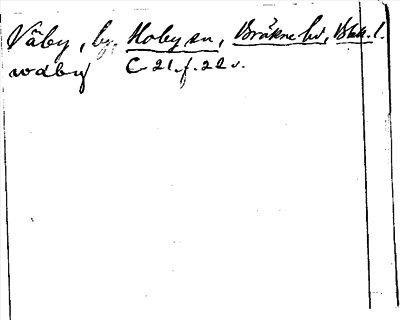 Väby, by, Hoby sn, Bräkne hd, Blek. l.
wodby C 21. f. 22 v.